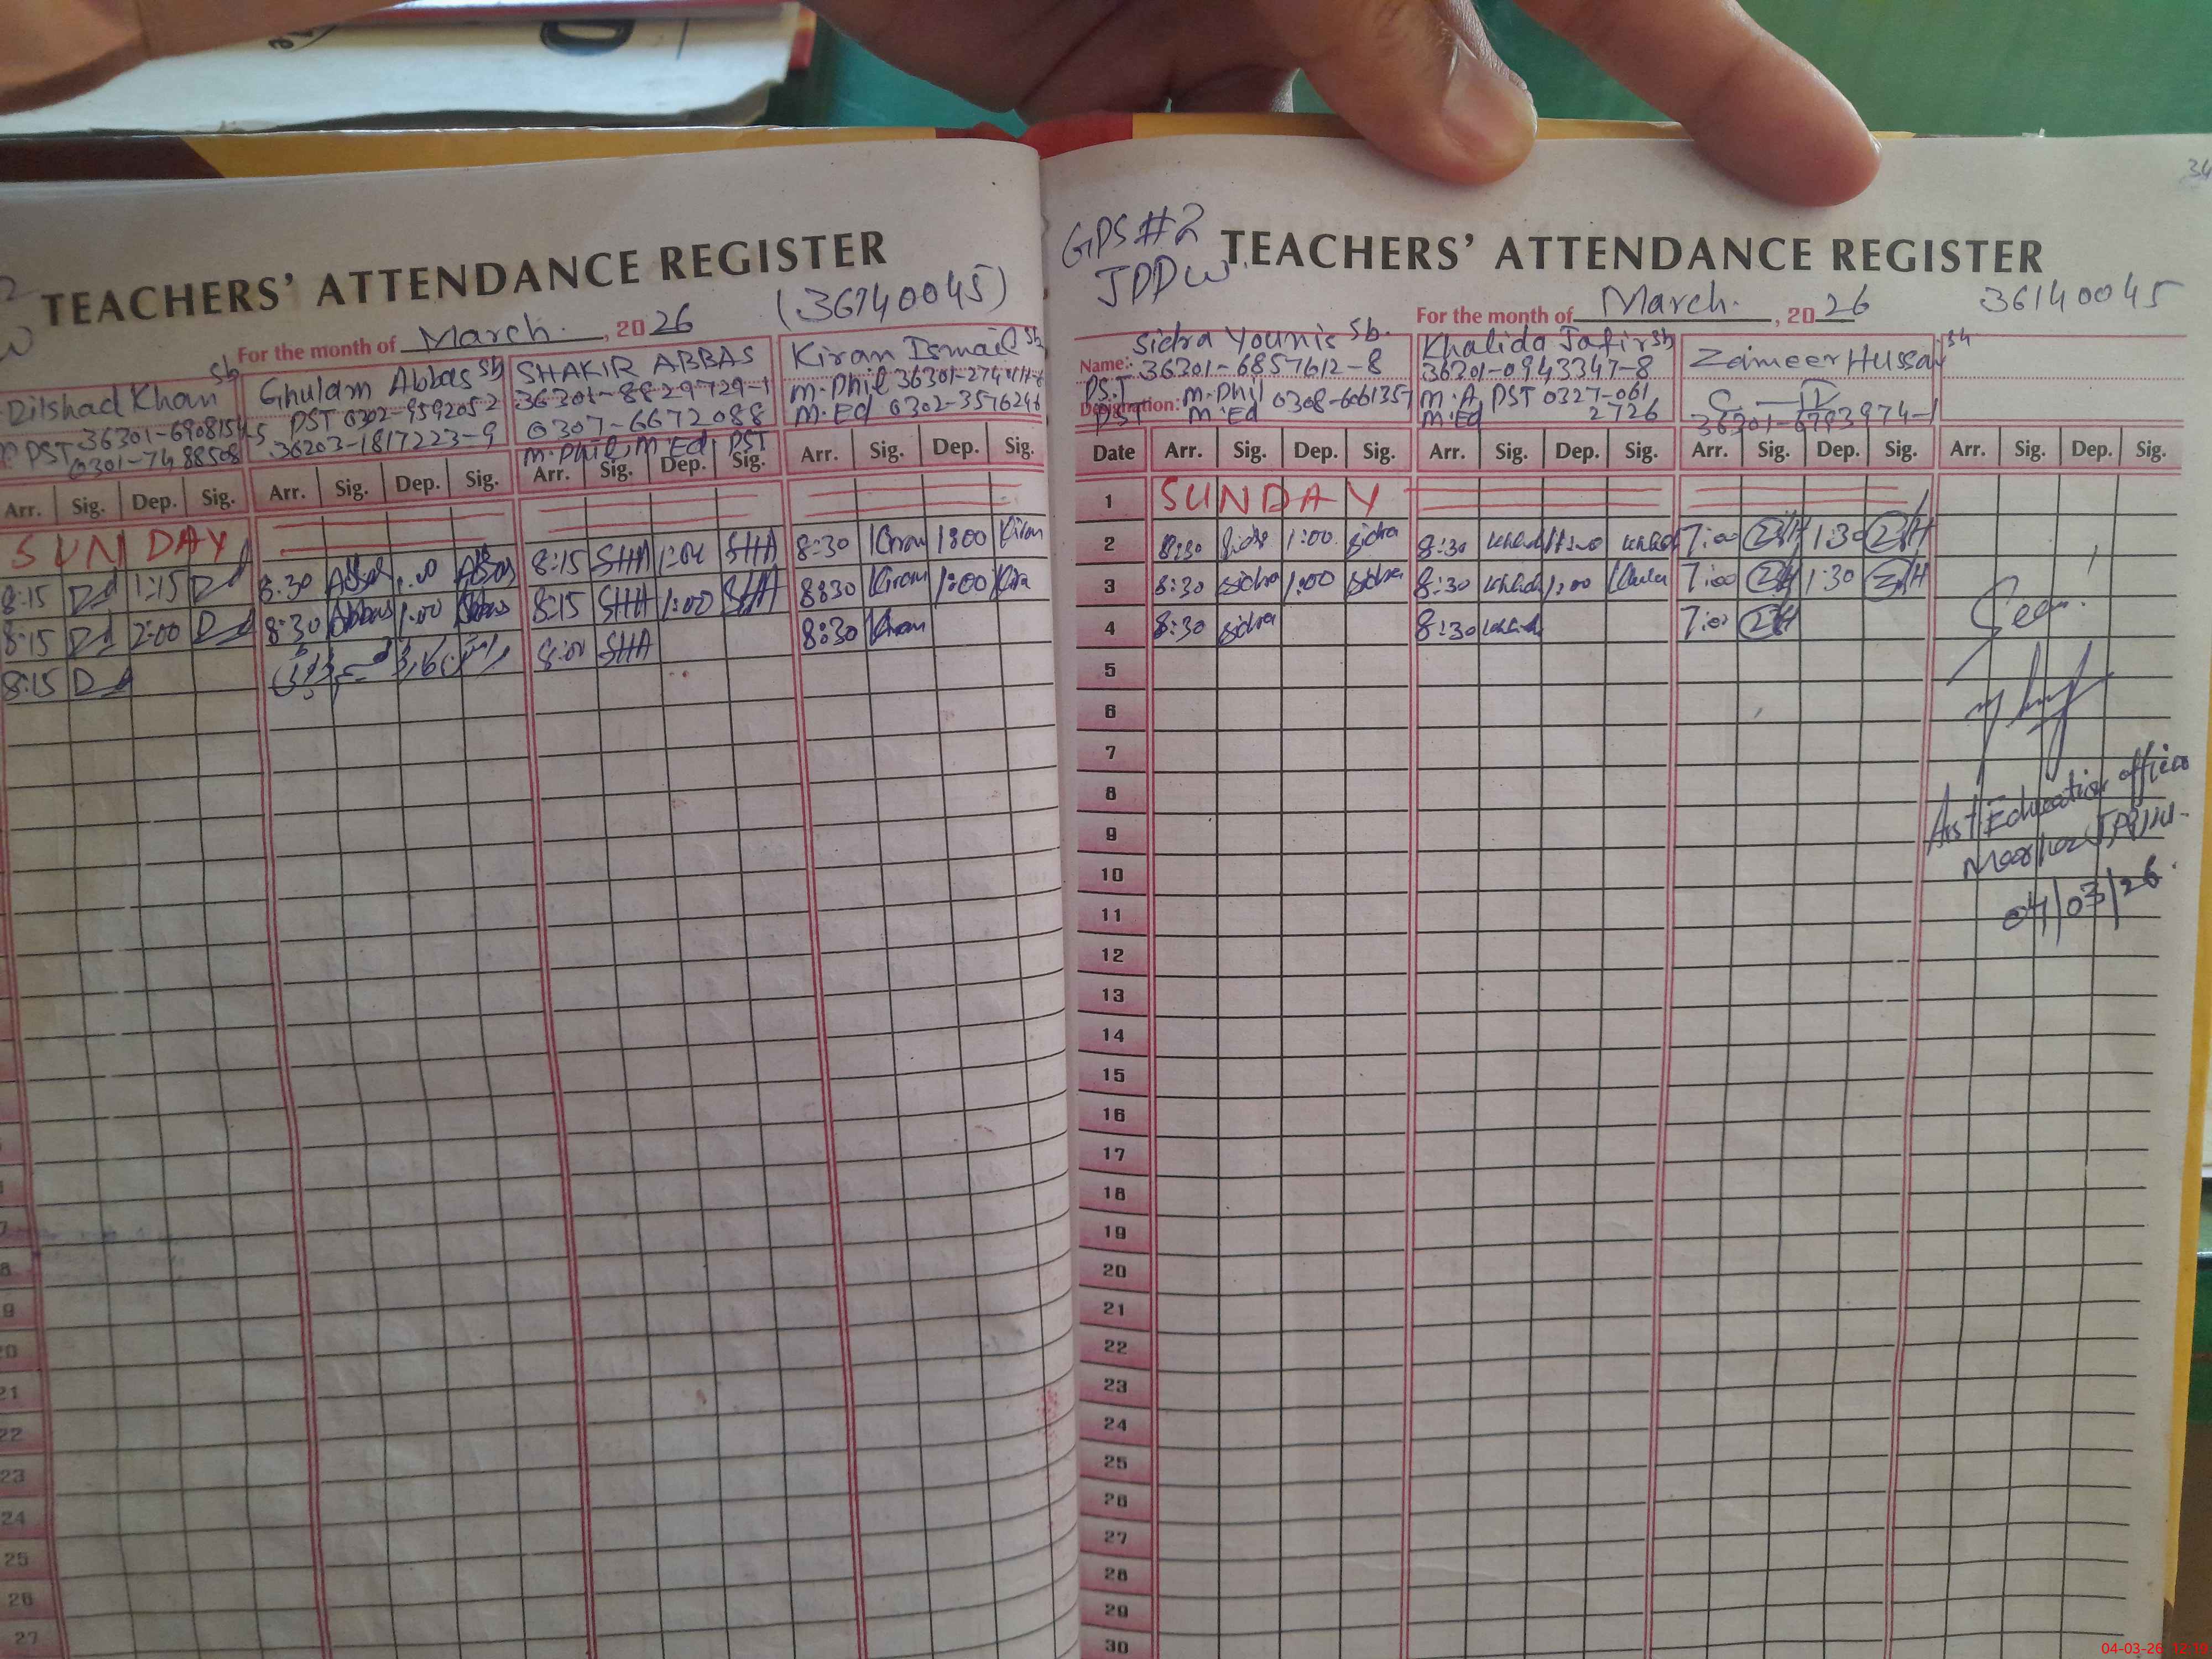 TEACHERS' ATTENDANCE REGISTER
(36140045)
For the month of March. , 2026
Dilshad Khan sb
PST 36301-6908154-5
0301-7488508
Ghulam Abbas sb
PST 0302-9592052
36203-1817223-9
SHAKIR ABBAS
36301-8829729-1
0307-6672088
M.Phil, M.Ed, PST
Kiran Ismail sb
M.Phil 36301-274
M.Ed 0302-3576246
Arr. Sig. Dep. Sig. Arr. Sig. Dep. Sig. Arr. Sig. Dep. Sig. Arr. Sig. Dep. Sig.
SUNDAY
8:15 Dd 1:15 Dd 8:30 Abbas 1:00 Abbas 8:15 SHA 1:00 SHA 8:30 Kiran 1:00 Kiran
8:15 Dd 2:00 Dd 8:30 Abbas 1:00 Abbas 8:15 SHA 1:00 SHA 8:30 Kiran 1:00 Kiran
8:15 Dd 8:00 SHA 8:30 Kiran
20
21
22
23
24
25
26
27
34
GPS#2
JPPW
TEACHERS' ATTENDANCE REGISTER
For the month of March. , 2026
36140045
Name: Sidra Younis Sb.
36301-6857612-8
Designation: M.Phil 0308-6061357
PST M.Ed
Khalida Jafir sb
36301-0943347-8
M.A, PST 0327-061
M.Ed 2726
Zameer Hussain
C-D
36301-6793974-1
Date Arr. Sig. Dep. Sig. Arr. Sig. Dep. Sig. Arr. Sig. Dep. Sig. Arr. Sig. Dep. Sig.
1 SUNDAY
2 8:30 Sidra 1:00 Sidra 8:30 Khalid 1:00 Khalid 7:00 ZH 1:30 ZH
3 8:30 Sidra 1:00 Sidra 8:30 Khalid 1:00 Khalid 7:00 ZH 1:30 ZH
4 8:30 Sidra 8:30 Khalid 7:00 ZH
Seen.
5
6
7
8
Asst Education officer
9
Markaz JPPW.
10
04/03/26.
11
12
13
14
15
16
17
18
19
20
21
22
23
24
25
26
27
28
29
30
04-03-26 12:19